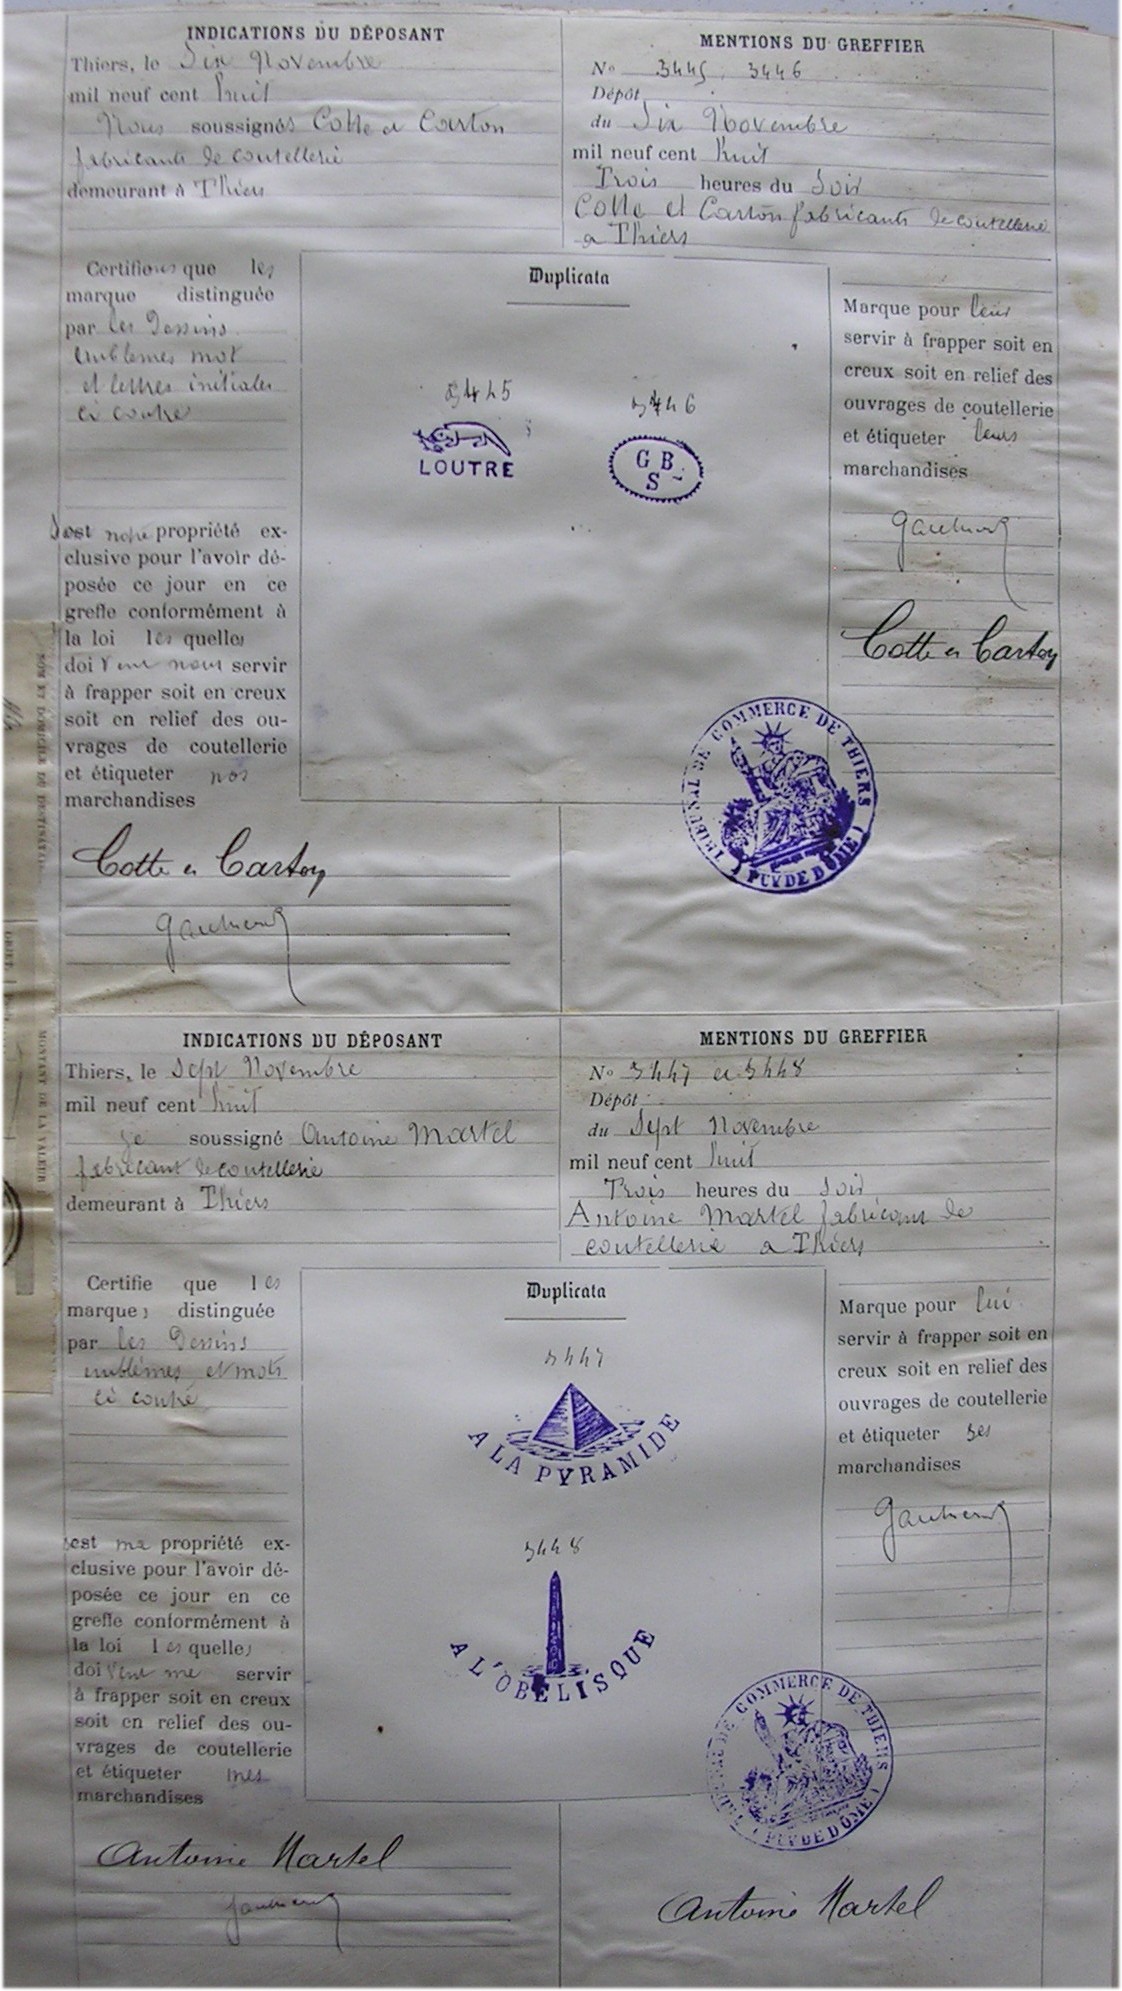 INDICATIONS DU DÉPOSANT
Thiers, le Six Novembre
mil neuf cent huit
Nous soussignés Cotte et Carton
fabricants de coutellerie
demeurant à Thiers
MENTIONS DU GREFFIER
No 3445, 3446
Dépôt
du Six Novembre
mil neuf cent huit
Trois heures du Soir
Cotte et Carton fabricants de coutellerie
a Thiers
Certifions que les
marque distinguée
par les Dessins
emblemes mot
et lettres initiales
ci contre
Sont notre propriété ex-
clusive pour l'avoir dé-
posée ce jour en ce
greffe conformément à
la loi lesquelles
doivent nous servir
à frapper soit en creux
soit en relief des ou-
vrages de coutellerie
et étiqueter nos
marchandises
Cotte et Carton
Duplicata
3445
LOUTRE
3446
G B
S
Marque pour leur
servir à frapper soit en
creux soit en relief des
ouvrages de coutellerie
et étiqueter leurs
marchandises
Cotte et Carton
TRIBUNAL DE COMMERCE DE THIERS
( PUY DE DÔME )
NOM ET DOMICILE DU DESTINATAIRE
MONTANT DE LA VALEUR
INDICATIONS DU DÉPOSANT
Thiers, le Sept Novembre
mil neuf cent huit
je soussigné Antoine Martel
fabricant de coutellerie
demeurant à Thiers
MENTIONS DU GREFFIER
No 3447 et 3448
Dépôt
du Sept Novembre
mil neuf cent huit
Trois heures du Soir
Antoine Martel fabricant de
coutellerie a Thiers
Certifie que les
marques distinguée
par les Dessins
emblèmes et mots
ci contre
sont ma propriété ex-
clusive pour l'avoir dé-
posée ce jour en ce
greffe conformément à
la loi lesquelles
doivent me servir
à frapper soit en creux
soit en relief des ou-
vrages de coutellerie
et étiqueter mes
marchandises
Antoine Martel
Duplicata
3447
A LA PYRAMIDE
3448
A L'OBÉLISQUE
Marque pour lui
servir à frapper soit en
creux soit en relief des
ouvrages de coutellerie
et étiqueter ses
marchandises
TRIBUNAL DE COMMERCE DE THIERS
( PUY DE DÔME )
Antoine Martel